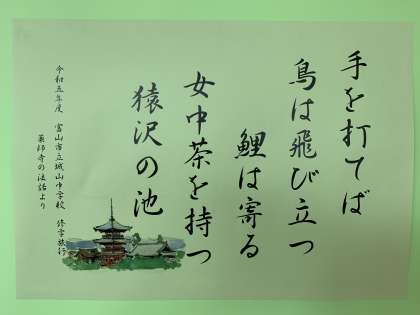 手を打てば
鳥は飛び立つ
鯉は寄る
女中茶を持つ
猿沢の池
令和五年度 富山市立城山中学校 修学旅行
薬師寺の法話より